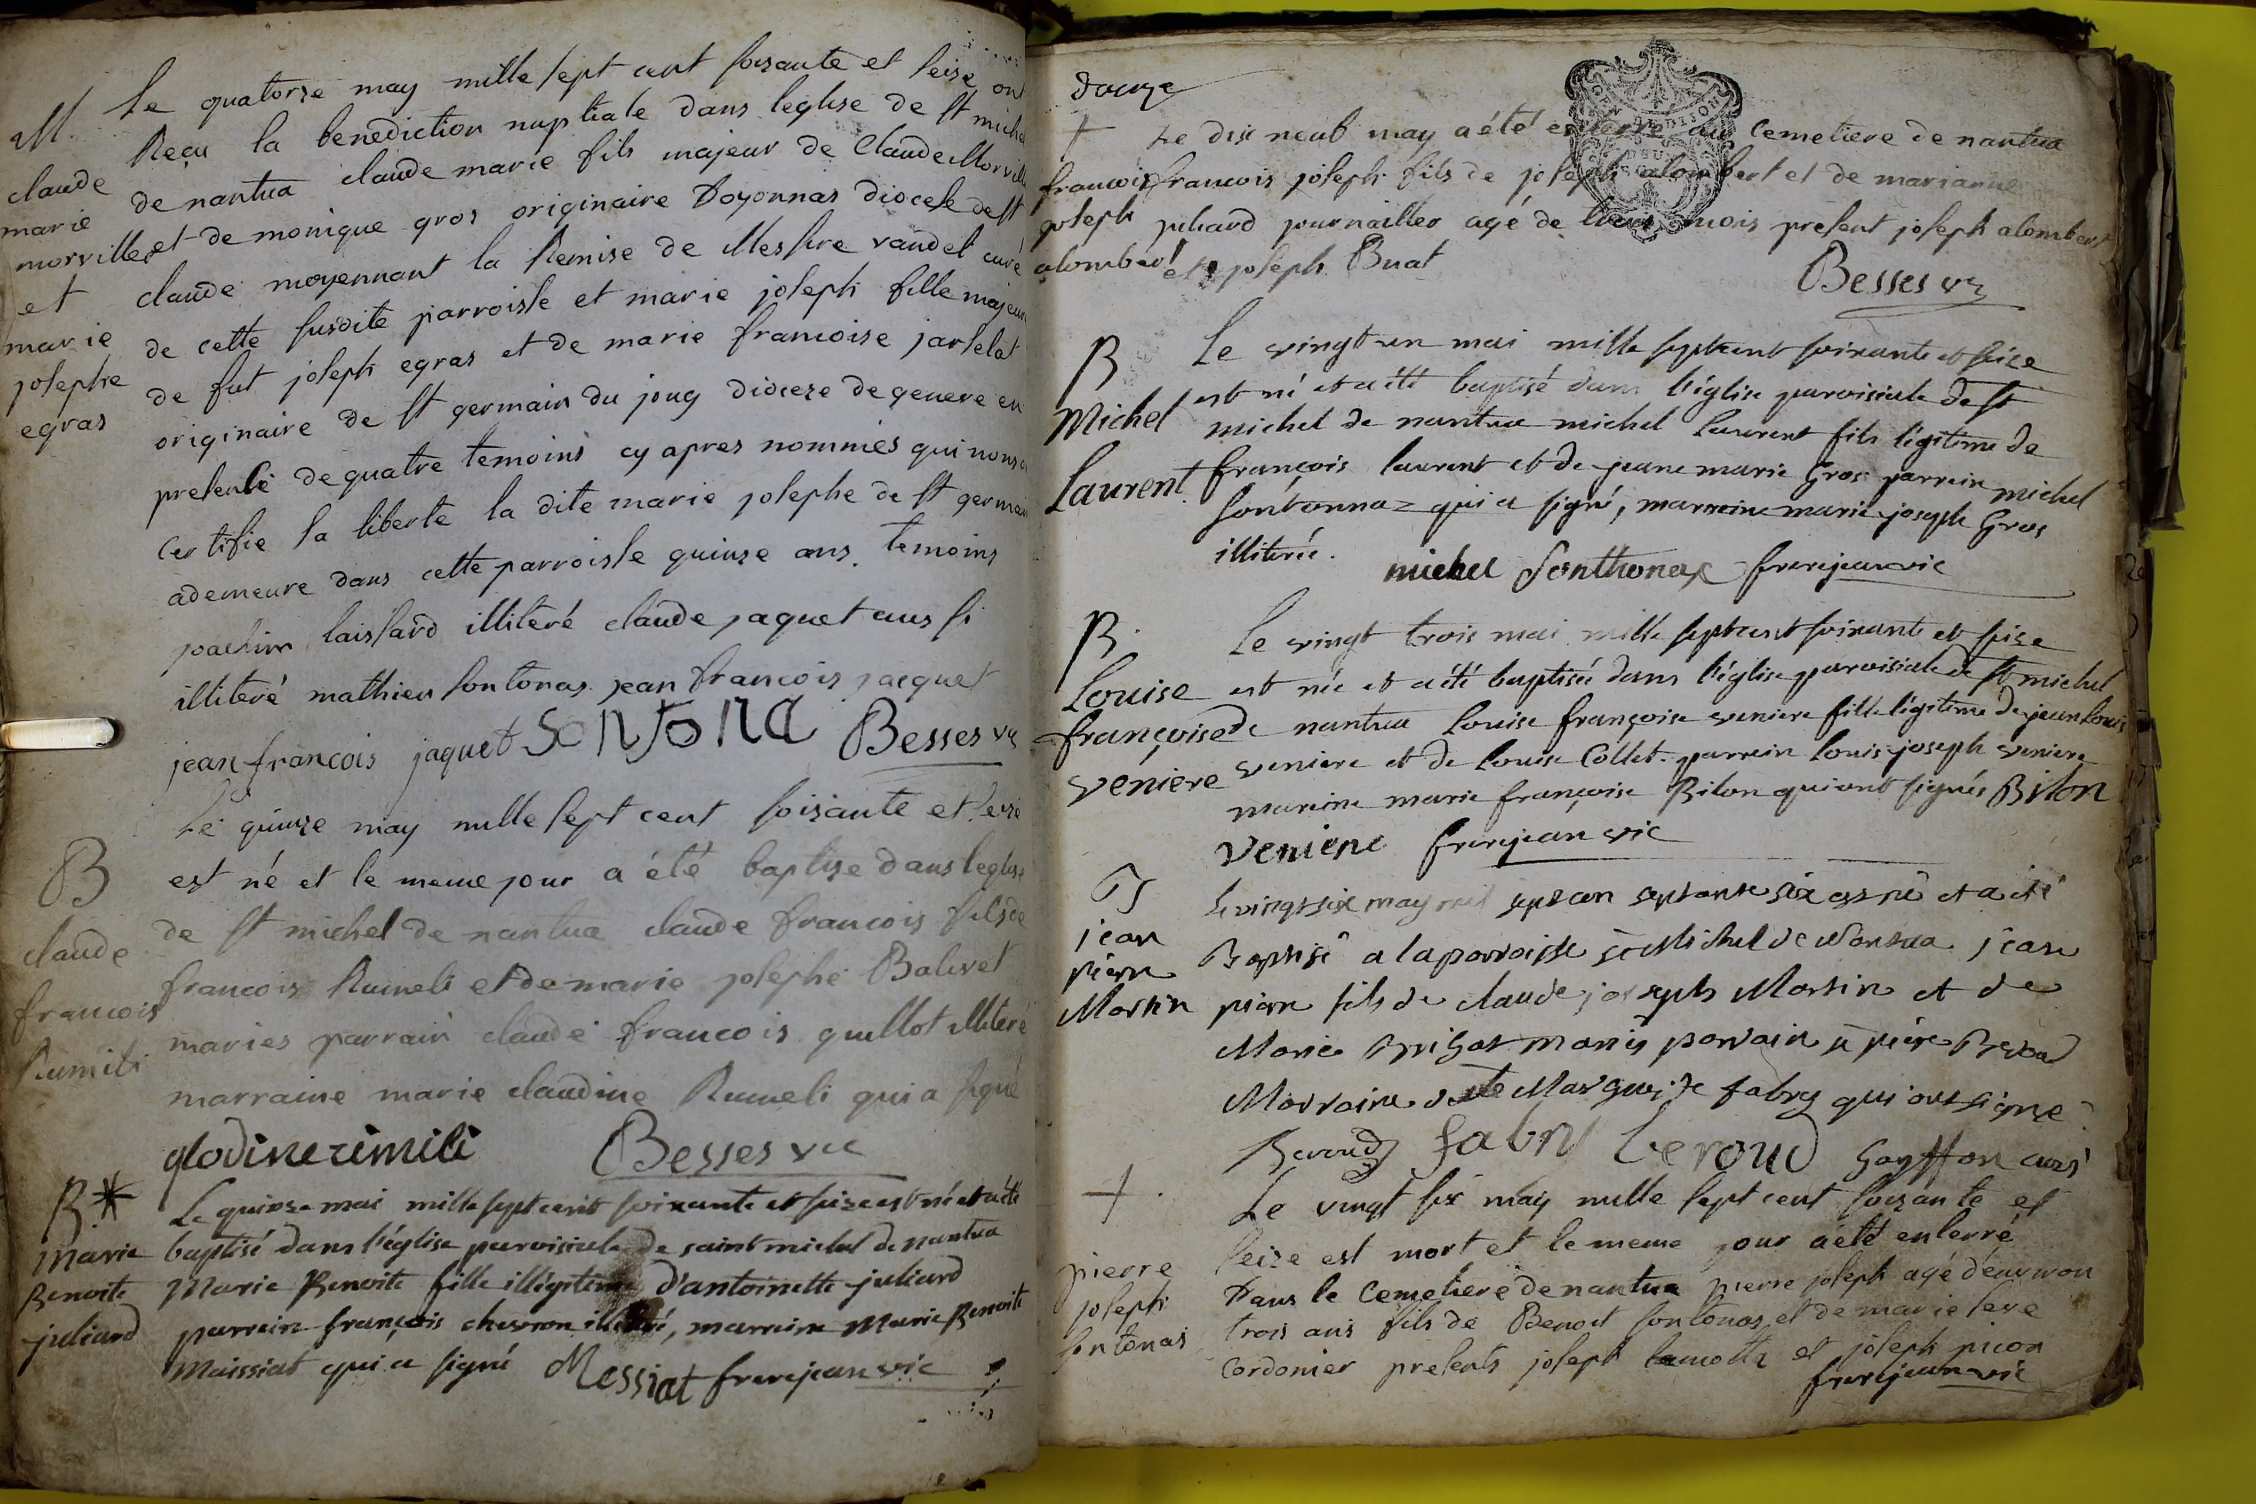 M.
claude
marie
morvillet
et
marie
josephe
egras
Le quatorze may mille sept cent soixante et seize ont
Reçu la benediction nuptiale dans leglise de st michel
de nantua claude marie fils majeur de Claude Morvillet
et de monique gros originaire Doyonnas diocese de st
claude moyennant la Remise de Messire vandel curé
de cette susdite parroisse et marie joseph fille majeure
de fut joseph egras et de marie francoise jarselat
originaire de st germain du joug diocese de geneve en
presence de quatre temoins cy apres nommés qui nous
certifie sa liberte la dite marie josephe de st germain
a demeure dans cette parroisse quinze ans. temoins
joachim laissard illiteré claude jaquet aussi
illiteré mathieu sontonas jean francois jacquet
jean francois jaquet SONTONA Besses vic
B
claude
francois
Rumili
Le quinze may mille sept cent soixante et seize
est né et le meme jour a été baptize dans leglise
de st michel de nantua claude francois fils de
francois Rumeli et de marie josephe Balivet
maries parrain claude francois guillot illiteré
marraine marie claudine Rumeli qui a signé
glodine rimili Besses vic
B.*
Marie
Benoite
juliard
Le quinze mai mille sept cent soixante et seize est né et a été
baptisé dans l'église paroisiale de saint michel de Nantua
Marie Benoite fille illégitime d'antoinette juliard
parrein françois chevron illiteré, marreine Marie Benoite
Maissiat qui a signé Messiat frerejean vic
douze
+
francois
joseph
alombert
Le dix neub may a été enterré au Cemetiere de nantua
francois joseph fils de joseph alombert et de marianne
juliard journallier agé de trois mois present joseph alombert
et joseph Buat
Besses vic
B
Michel
Laurent
Le vingt un mai mille sept cent soixante et seize
est né et a été baptisé dans l'église paroisiale de st
michel de nantua michel laurent fils légitime de
françois laurent et de jeane marie Gros parrein michel
Sontonnaz qui a signé, marreine marie joseph Gros
illiterée.
michel Sonthonax frerejean vic
B.
Louise
françoise
venière
Le vingt trois mai mille sept cent soixante et seize
est née et a été baptisée dans l'église paroisiale de st michel
de nantua Louise françoise veniere fille légitime de jean Louis
veniere et de louise Collet. parrein louis joseph veniere
mareine marie françoise Bilon qui ont signés Bilon
veniere frerejean vic
B
jean
piere
Martin
le vingt six may mil sept cen septante six est né et a été
Baptisé a la parroisse st Michel de Nantua jean
piere fils de claude joseph Martin et de
Marie mariés parrain sr piere
Marraine dlle Marguerite fabry qui ont signé
fabry beroud Gayffon curé
+.
pierre
joseph
sontonas
Le vingt six may mille sept cent soixante et
seize est mort et le meme jour a été enterré
Dans le Cemetiere de nantua pierre joseph agé d'environ
trois ans fils de Benoit sontonas et de marie seve
cordonier presents joseph lamotte et joseph picon
frerejean vic